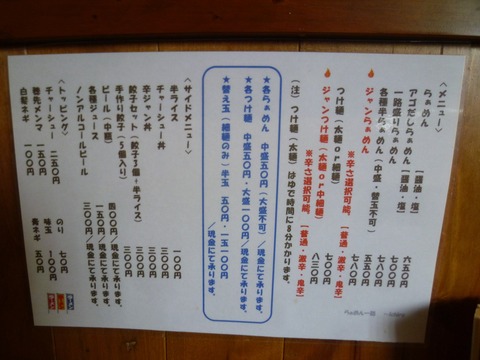 <メニュー>
らぁめん [醤油・塩] 六五〇円
アゴだしらぁめん [醤油・塩] 七八〇円
一路盛りらぁめん 七八〇円
各種半らぁめん (中盛・替玉不可) 五五〇円
ジャンらぁめん 七八〇円
※辛さ選択可能。[普通・激辛・鬼辛]
つけ麺 (太麺or細麺) 七〇〇円
ジャンつけ麺 (太麺or中細麺) 八三〇円
※辛さ選択可能。[普通・激辛・鬼辛]
(注) つけ麺 (太麺) はゆで時間に8分かかります。
★各らぁめん 中盛五〇円 (大盛不可) /現金にて承ります。
★各つけ麺 中盛五〇円・大盛一〇〇円/現金にて承ります。
★替え玉 (細麺のみ) 半玉 五〇円・一玉一〇〇円
/現金にて承ります。
<サイドメニュー>
半ライス 一〇〇円
チャーシュー丼 三〇〇円
辛ジャン丼 三〇〇円
餃子セット (餃子3個+半ライス) 三〇〇円
手作り餃子 (5個入り) 三〇〇円
ビール (中瓶) 四〇〇円/現金にて承ります。
各種ジュース 二〇〇円/現金にて承ります。
ノンアルコールビール 三〇〇円/現金にて承ります。
<トッピング>
チャーシュー 二五〇円 のり 七〇円
穂先メンマ 一五〇円 味玉 一〇〇円
白髪ネギ 一〇〇円 青ネギ 五〇円
らぁめん一路